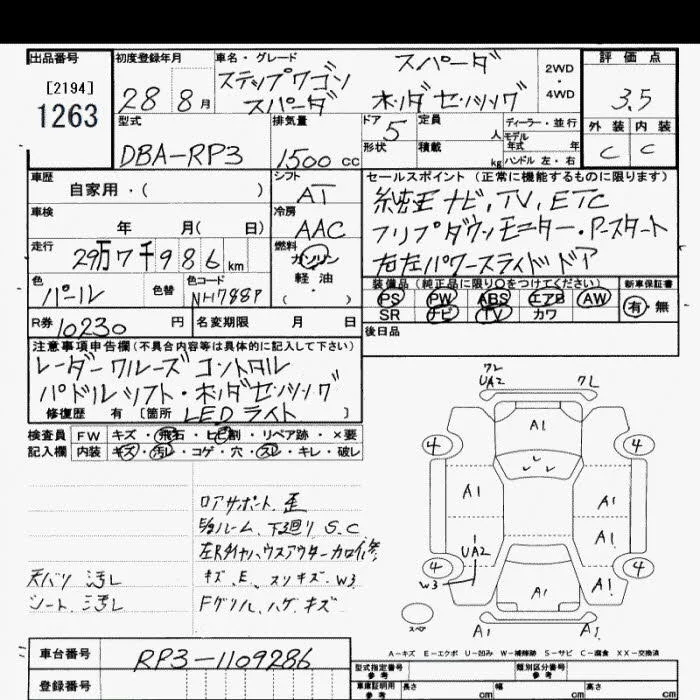 出品番号
[2194]
1263
初度登録年月
28 8月
車名・グレード
ステップワゴン スパーダ
スパーダ ホンダセンシング
2WD
・
4WD
評価点
3.5
外装 内装
C C
型式
DBA-RP3
排気量
1500 cc
ドア 5
形状
定員 人
積載 kg
ディーラー・並行
モデル年式 年式
ハンドル 左・右
車歴
自家用・( )
シフト
AT
車検
年 月( 日)
冷房
AAC
走行
29万7千986km
燃料
ガソリン
軽油
・
( )
色
パール
色替
色コード
NH788P
R券 10230円
名変期限 月 日
セールスポイント(正常に機能するものに限ります)
純正ナビ,TV,ETC
フリップダウンモニター・Pスタート
右左パワースライドドア
装備品(純正品に限り○をつけてください)
PS PW ABS エアB AW
SR ナビ TV カワ
新車保証書
有・無
後日品
注意事項申告欄(不具合内容等は具体的に記入して下さい)
レーダークルーズコントロル
パドルシフト・ホンダセンシング
LEDライト
修復歴 有 [箇所 ]
検査員記入欄
FW キズ・飛石・ヒビ割・リペア跡・×要
内装 キズ・汚レ・コゲ・穴・スレ・キレ・破レ
ロアサポート歪
下廻り S.C
キズ、E、スリキズ・W3
Fグリル、ハゲ、キズ
天バリ 汚レ
シート、汚レ
フレ
UA2
フレ
A1
④
④
A1
A1
A1
UA2
W3
④
④
A1
A1
スペア
A1
A1
A-キズ E-エクボ U-凹み W-補修跡 S-サビ C-腐食 XX-交換済
車台番号
RP3-1109286
登録番号
型式指定番号 参考
類別区分番号 参考
車庫証明用 参考
長さ cm
幅 cm
高さ cm